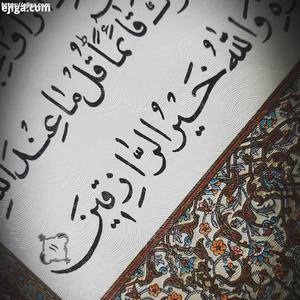 ejiga.com
قَائِمًا قُلْ مَا عِنْدَ اللّٰهِ
وَاللّٰهُ خَيْرُ الرَّازِقِينَ